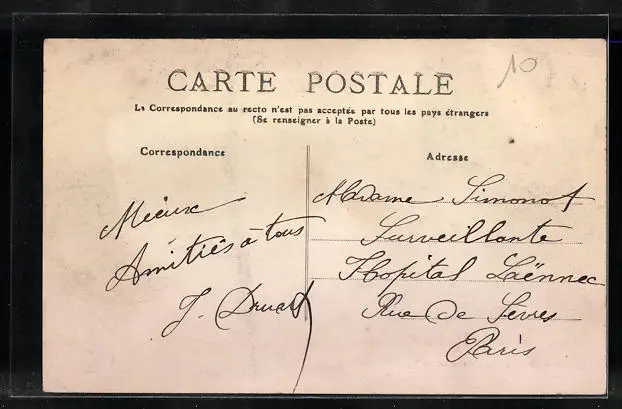 10
CARTE POSTALE
La Correspondance au recto n'est pas acceptée par tous les pays étrangers
(Se renseigner à la Poste)
Correspondance
Adresse
Mieux
Amitiés à tous
J. Druart
Madame Simonot
Surveillante
Hopital Laënnec
Rue de Sèvres
Paris